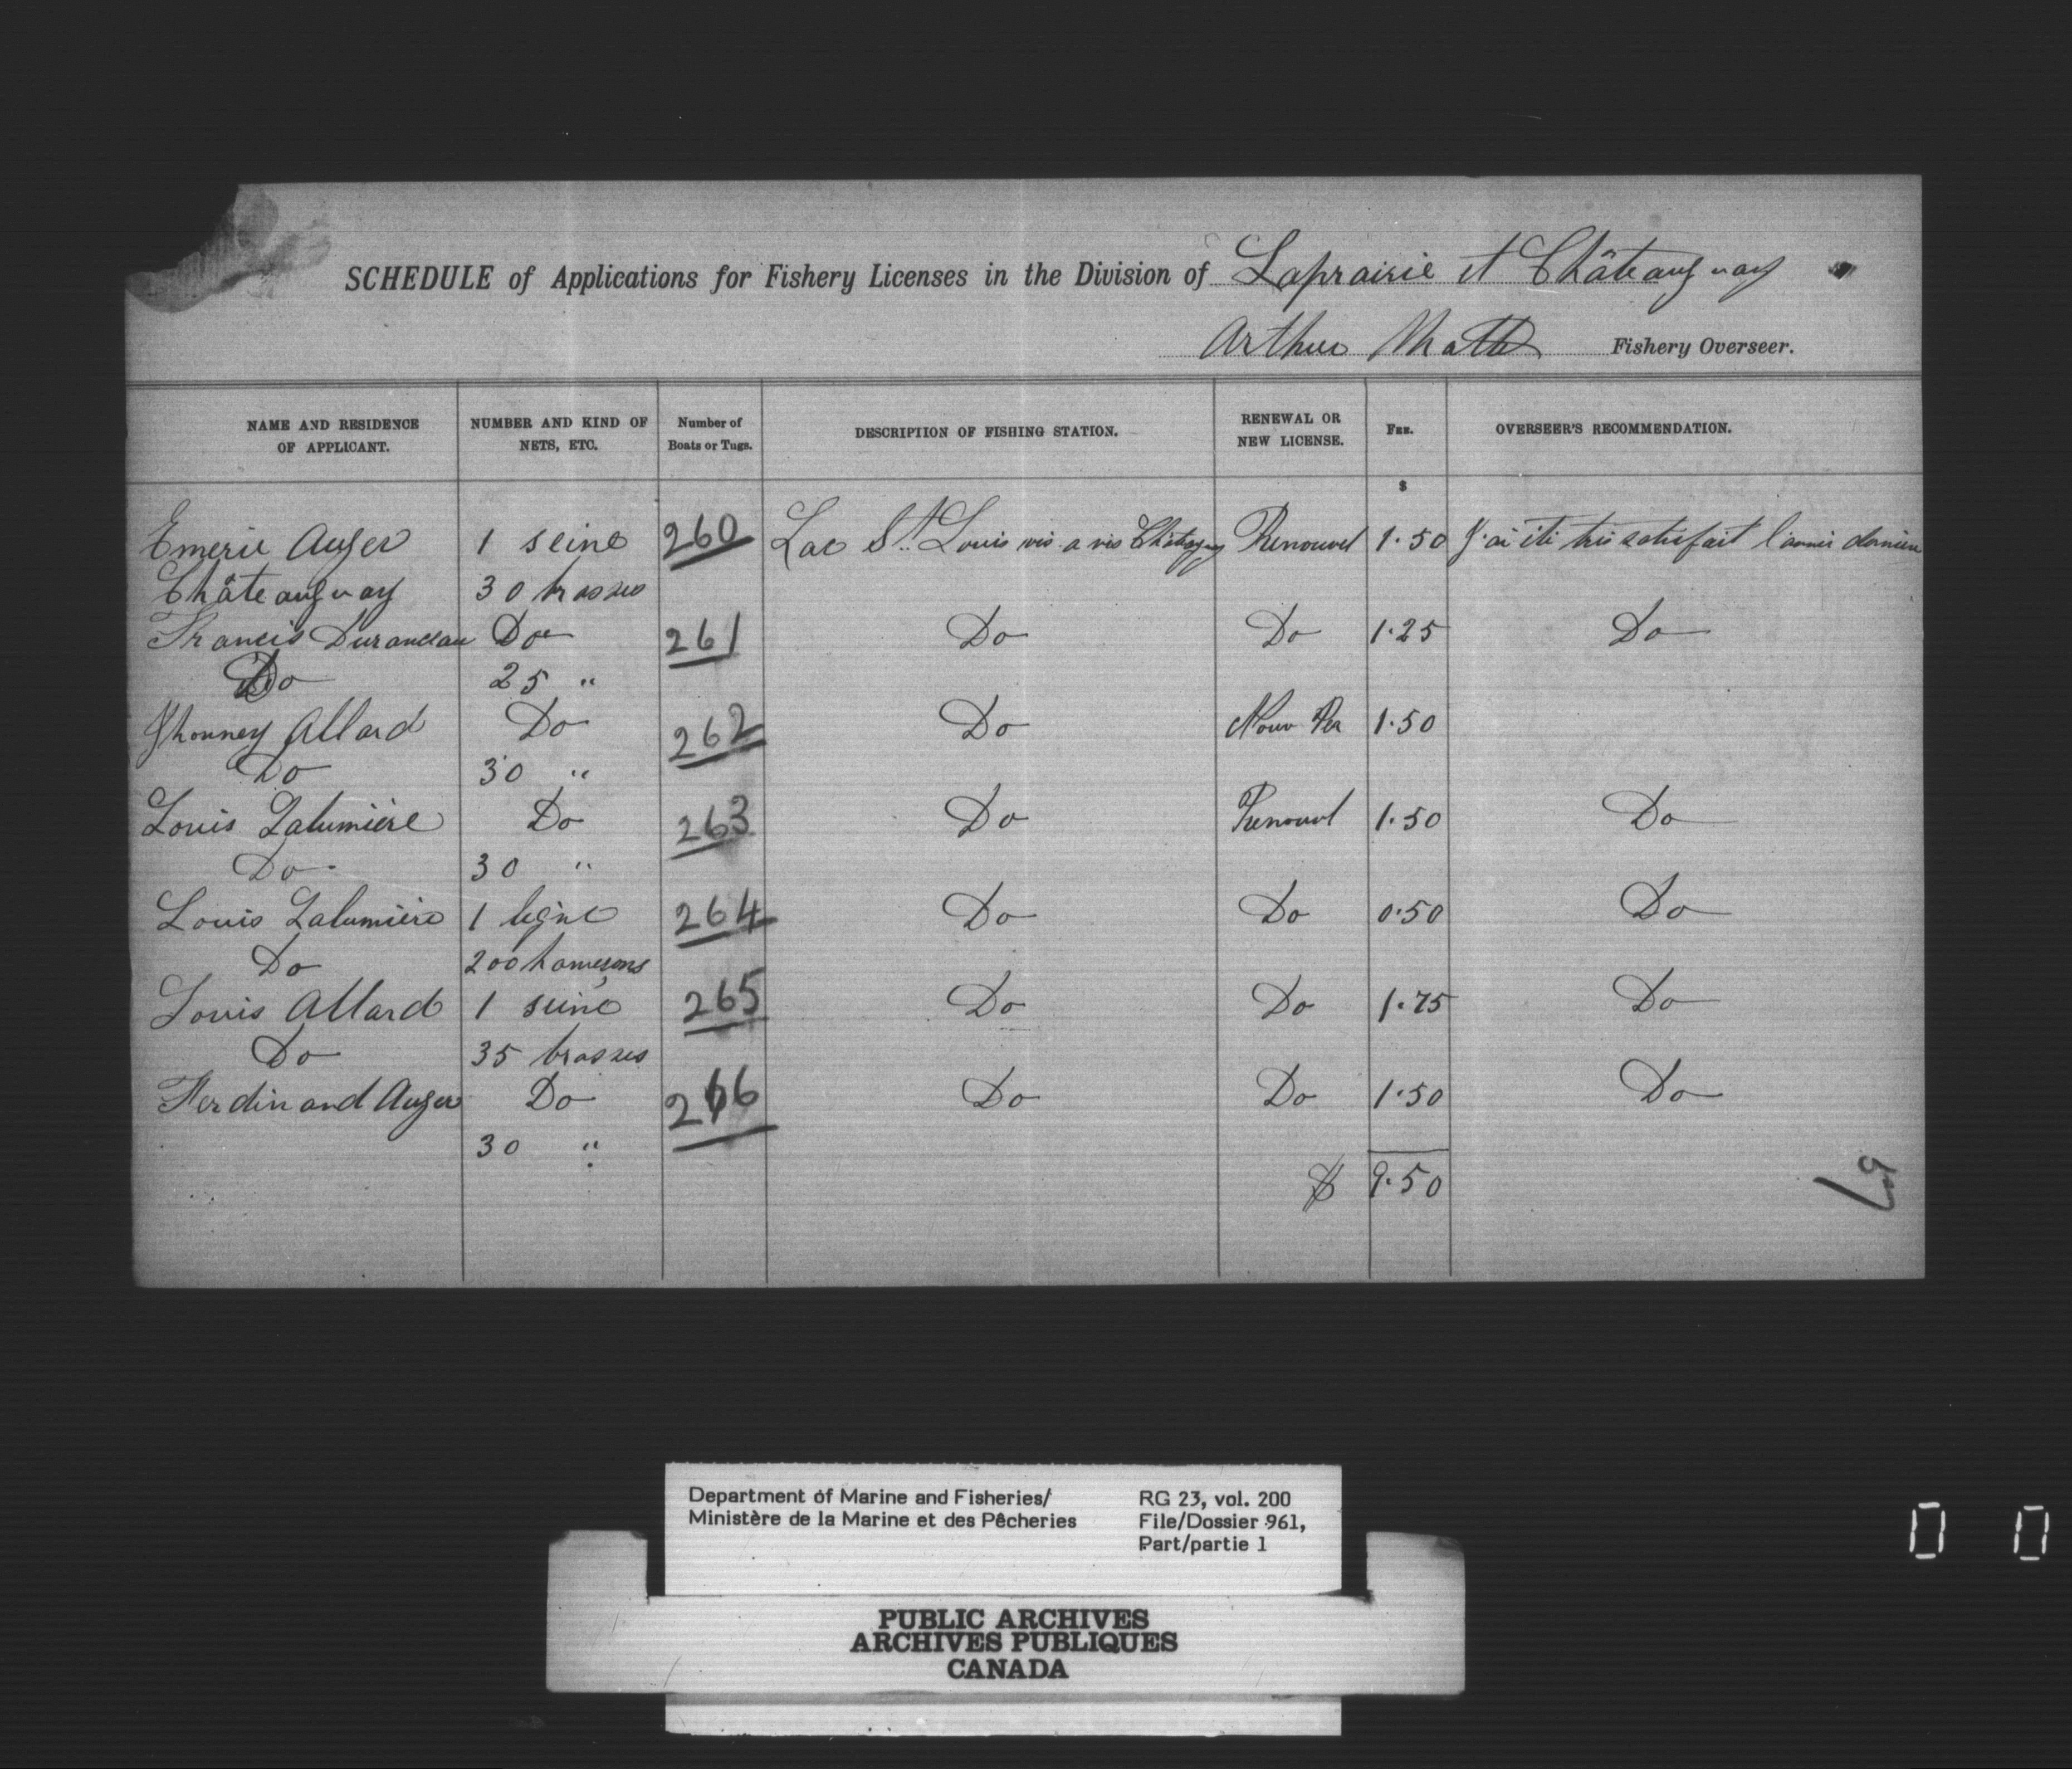 SCHEDULE of Applications for Fishery Licenses in the Division of Laprairie et Châteauguay
Arthur Fishery Overseer.
NAME AND RESIDENCE OF APPLICANT. NUMBER AND KIND OF NETS, ETC. Number of Boats or Tugs. DESCRIPTION OF FISHING STATION. RENEWAL OR NEW LICENSE. FEE. OVERSEER'S RECOMMENDATION.
$
Emerie Auger 1 seine 260 Lac St. Louis vis a vis Renouvel 1.50 J'ai été très satisfait l'année dernière
Châteauguay 30 brasses
Francis Duranceau Do 261 Do Do 1.25 Do
Do 25 "
Jhonney Allard Do 262 Do Nouv 1.50
Do 30 "
Louis Lalumière Do 263 Do Renouvel 1.50 Do
Do 30 "
Louis Lalumière 1 ligne 264 Do Do 0.50 Do
Do 200 hameçons
Louis Allard 1 seine 265 Do Do 1.75 Do
Do 35 brasses
Ferdinand Auger Do 266 Do Do 1.50 Do
30 "
$ 9.50
Department of Marine and Fisheries/ RG 23, vol. 200
Ministère de la Marine et des Pêcheries File/Dossier 961,
Part/partie 1
PUBLIC ARCHIVES
ARCHIVES PUBLIQUES
CANADA
0 0